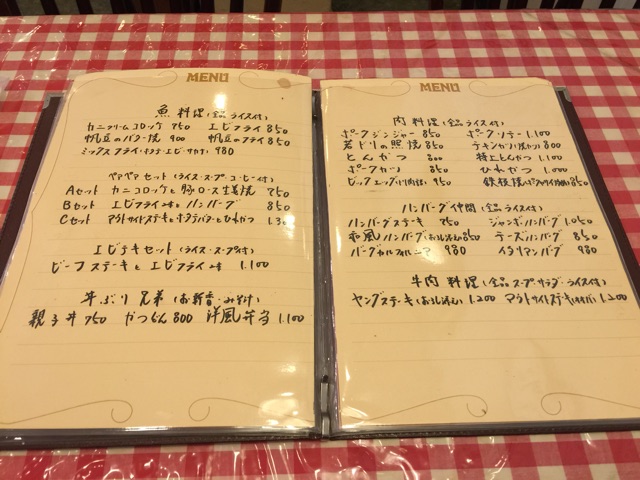 MENU
魚料理(全品ライス付)
カニクリームコロッケ 750 エビフライ 850
帆立のバター焼 900 帆立のフライ 850
ミックスフライ・ホタテ・エビ・サカナ 980
ペアペアセット(ライス・スープ・コーヒー付)
Aセット カニコロッケと豚ロース生姜焼 750
Bセット エビフライとハンバーグ 850
Cセット アウトサイドステーキとホタテバターとひれかつ
エビテキセット(ライス・スープ付)
ビーフステーキとエビフライ 1.100
丼ぶり兄弟(お新香・みそ付)
親子丼 750 かつどん 800 洋風弁当 1.100
MENU
肉料理(全品ライス付)
ポークジンジャー 850 ポークソテー 1.100
若どりの照焼 850 チキンカツ 800
とんかつ 800 特上とんかつ 1.100
ポークカツ 850 ひれかつ 1.000
ビッグエッグ 950 鉄板焼 850
ハンバーグ仲間(全品ライス付)
ハンバーグステーキ 750 ジャンボハンバーグ 1.050
和風ハンバーグ 850 チーズハンバーグ 850
バーグカルフォルニア 980 イタリアンバーグ 980
牛肉料理(全品スープサラダ・ライス付)
ヤングステーキ 1.200 アウトサイドステーキ 1.200